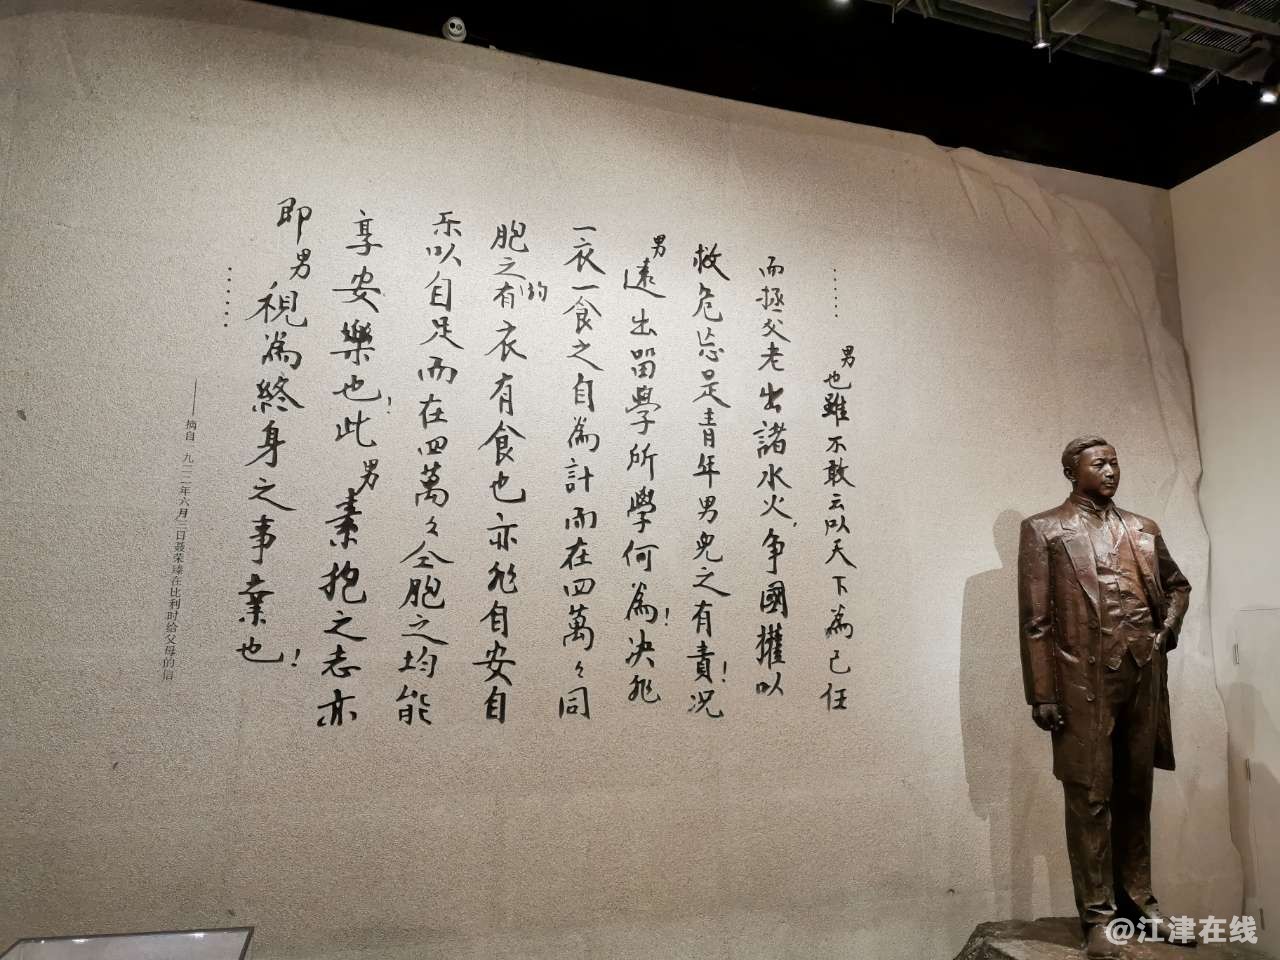 ……
男也雖不敢云以天下為己任
而拯父老出諸水火,争國權以
救危亡是青年男兒之有責!况
男遠出留學所學何為!决非
一衣一食之自為計而在四萬々同
胞之均有衣有食也亦非自安自
乐以自足而在四萬々仝胞之均能
享安樂也!此男素抱之志亦
即男視為終身之事業也!
……
——摘自一九二二年六月三日聂荣臻在比利时给父母的信
@江津在线